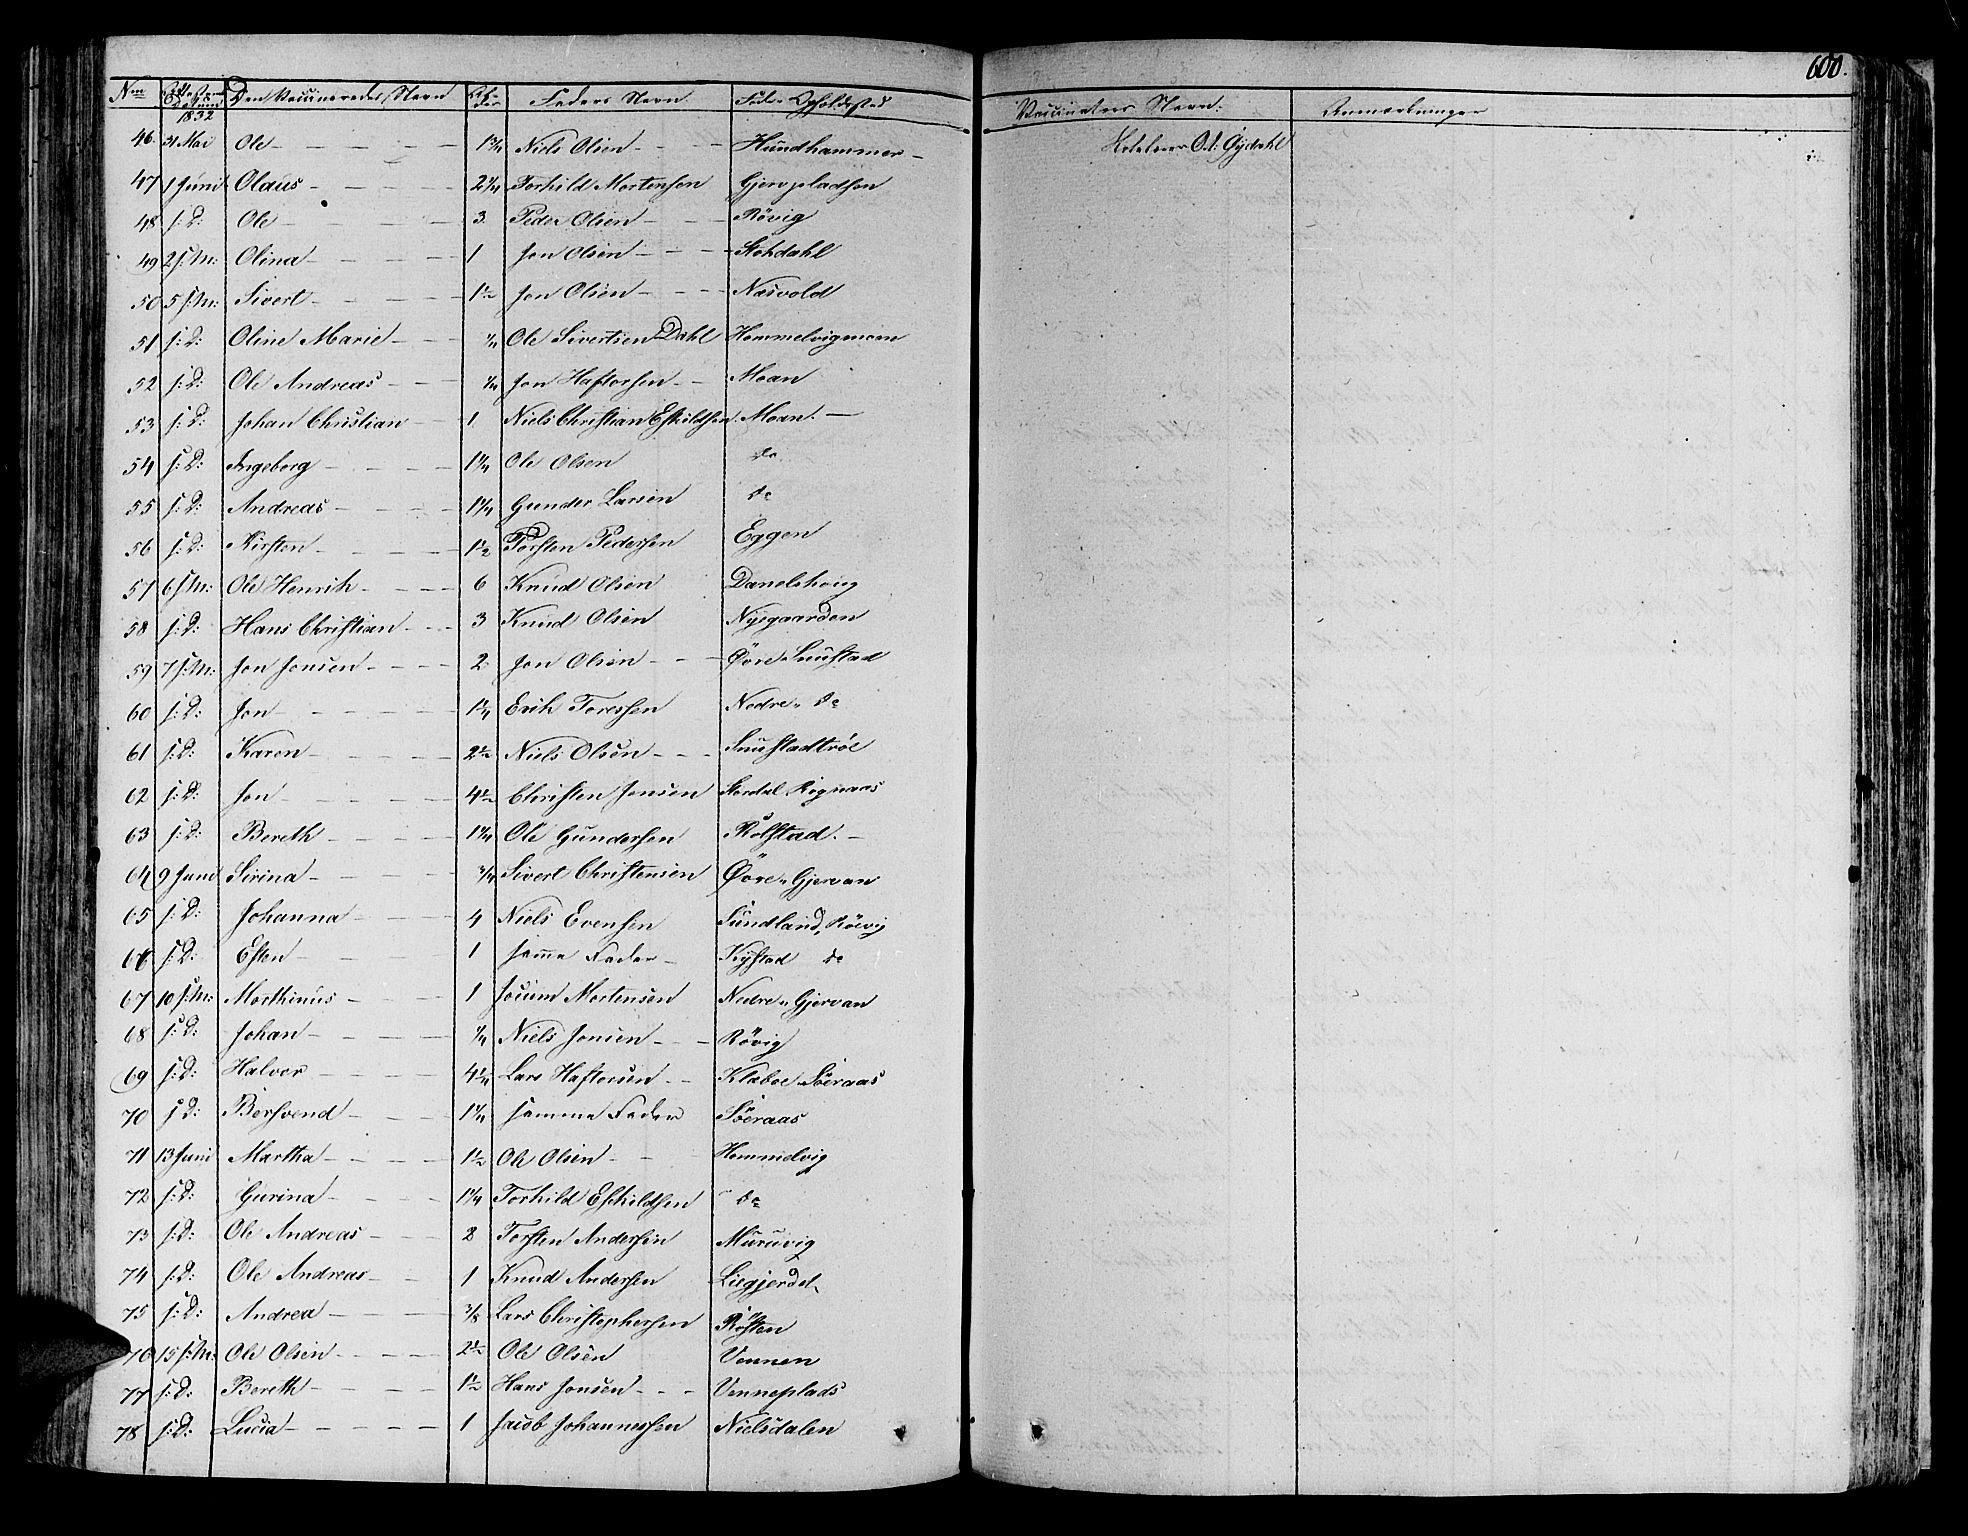 600.
Den Vaccineredes Navn Faders Navn Opholdsted Vaccinateurs Navn: Anmærkninger
1832
46 31 Mai Ole Niels Olsen Hundhammer
47 1 Juni Olaus 2 1/4 Torkild Mortensen Gjervpladsen
48 s: D: Ole 3 Peder Olsen Rövig
49 2 s: M: Olina 1 Jon Olsen Stokdahl
50 5 s: M: Sivert 1 1/2 Jon Olsen Næsvold
51 s: D: Oline Marie Ole Sivertsen Dahl Hommelvigmoen
52 s: D: Ole Andreas 1/4 Jon Haftorsen Moan
53 s: D: Johan Christian 1 Niels Christian Eskildsen Moan
54 s: D: Ingeborg 1 1/4 Ole Olsen do
55 s: D: Andreas 1 1/4 Gunder Larsen do
56 s: D: Kirsten 1 1/2 Torsten Pedersen Eggen
57 6 s: M: Ole Henrik 6 Knud Olsen Danelshoug
58 s: D: Hans Christian 3 Knud Olsen Nygaarden
59 7 s: M: Jon Jonsen 2 Jon Olsen Øvre Snustad
60 s: D: Jon 1 1/4 Erik Toressen Nedre do
61 s: D: Karen 2 1/2 Niels Olsen Snustadtrøe
62 s: D: Jon 4 1/2 Christen Jonsen Rognaas
63 s: D: Bereth 1 1/4 Ole Gundersen Rolstad.
64 9 Juni Sirina 3/4 Sivert Christensen Øvre Gjervan
65 s: D: Johanna 4 Niels Evensen Sundland, Röevig
66 s: D: Esten 1 Samme Fader Kystad do
67 10 s: M: Morthinus 1 Jocum Mortensen Nedre Gjervan
68 s: D: Johan 1/4 Niels Jonsen Rövig
69 s: D: Halvor 4 1/4 Lars Haftorsen Klæboe Söeraas
70 s: D: Bersvend 1 1/4 Samme Fader Söeraas
71 13 Juni Martha 1 1/2 Ole Olsen Hommelvig
72 s: D: Gurina 1 1/4 Torkild Eskildsen do
73 s: D: Ole Andreas 2 Torsten Andersen Muruvig
74 s: D: Ole Andreas 1 Knud Andersen Liegjerdet
75 s: D: Andrea 3/8 Lars Christophersen Rösten
76 15 s: M: Ole Olsen 2 1/2 Ole Olsen Vennen
77 s: D: Bereth 1 1/2 Hans Jonsen Venneplads
78 s: D: Lucia 1 Jacob Johannessen Nielsdalen